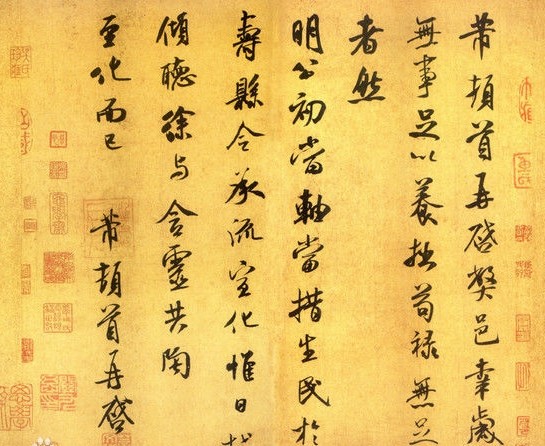 芾頓首再啓弊邑幸歲
無事足以養拙苟禄無足
者然
明公初當軸當措生民於
壽縣令承流宣化惟日拭
傾聽徐与含靈共陶
至化而已 芾頓首再啓